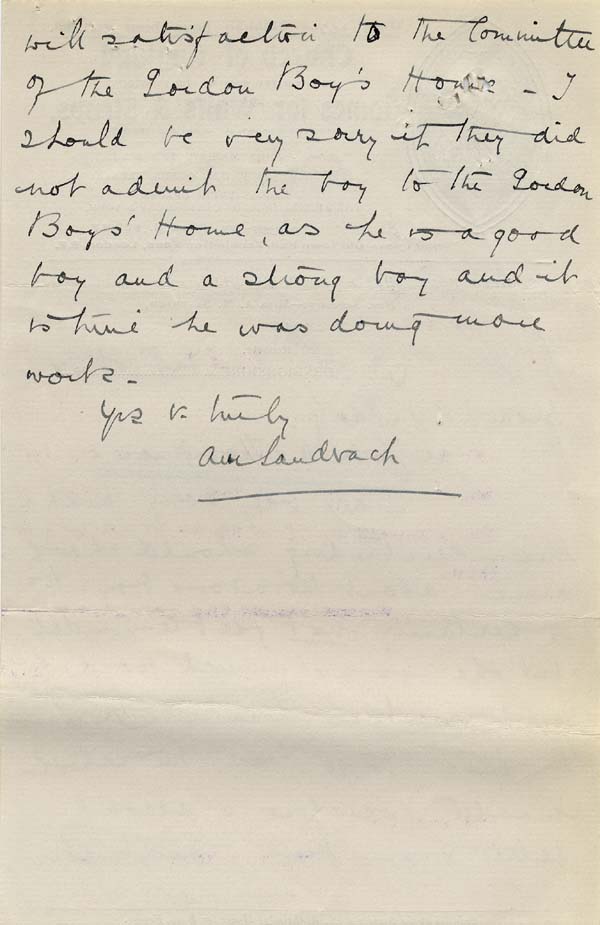 will satisfaction to the Committee
of the Gordon Boy's Home - I
should be very sorry if they did
not admit the boy to the Gordon
Boys' Home, as he is a good
boy and a strong boy and it
is time he was doing more
work -
Yrs v. truly
Sandbach